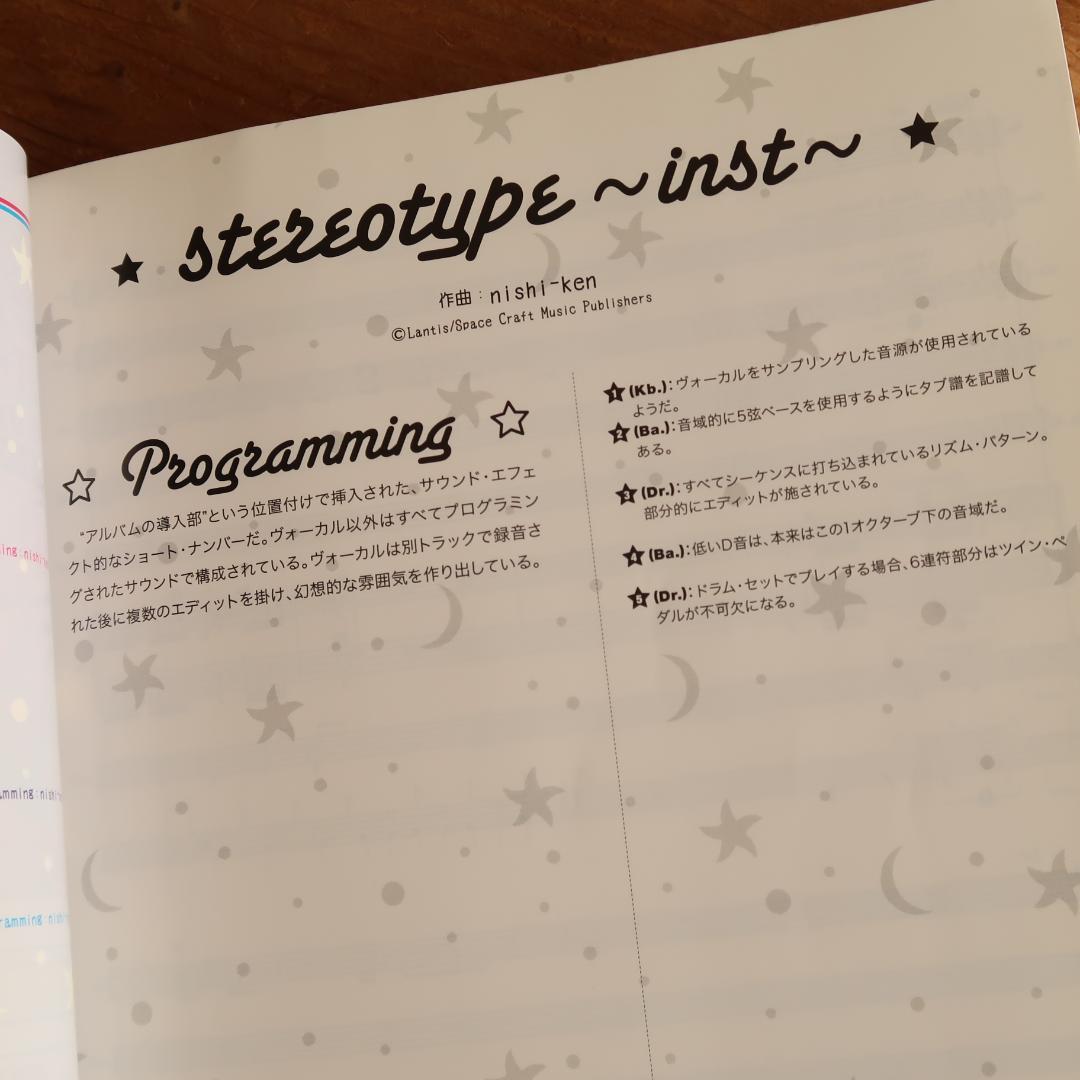 ★ stereotype ～inst～ ★
作曲：nishi-ken
©Lantis/Space Craft Music Publishers
☆ Programming ☆
“アルバムの導入部”という位置付けで挿入された、サウンド・エフェ
クト的なショート・ナンバーだ。ヴォーカル以外はすべてプログラミン
グされたサウンドで構成されている。ヴォーカルは別トラックで録音さ
れた後に複数のエディットを掛け、幻想的な雰囲気を作り出している。
1 (Kb.)：ヴォーカルをサンプリングした音源が使用されている
ようだ。
2 (Ba.)：音域的に5弦ベースを使用するようにタブ譜を記譜して
ある。
3 (Dr.)：すべてシーケンスに打ち込まれているリズム・パターン。
部分的にエディットが施されている。
4 (Ba.)：低いD音は、本来はこの1オクターブ下の音域だ。
5 (Dr.)：ドラム・セットでプレイする場合、6連符部分はツイン・ペ
ダルが不可欠になる。